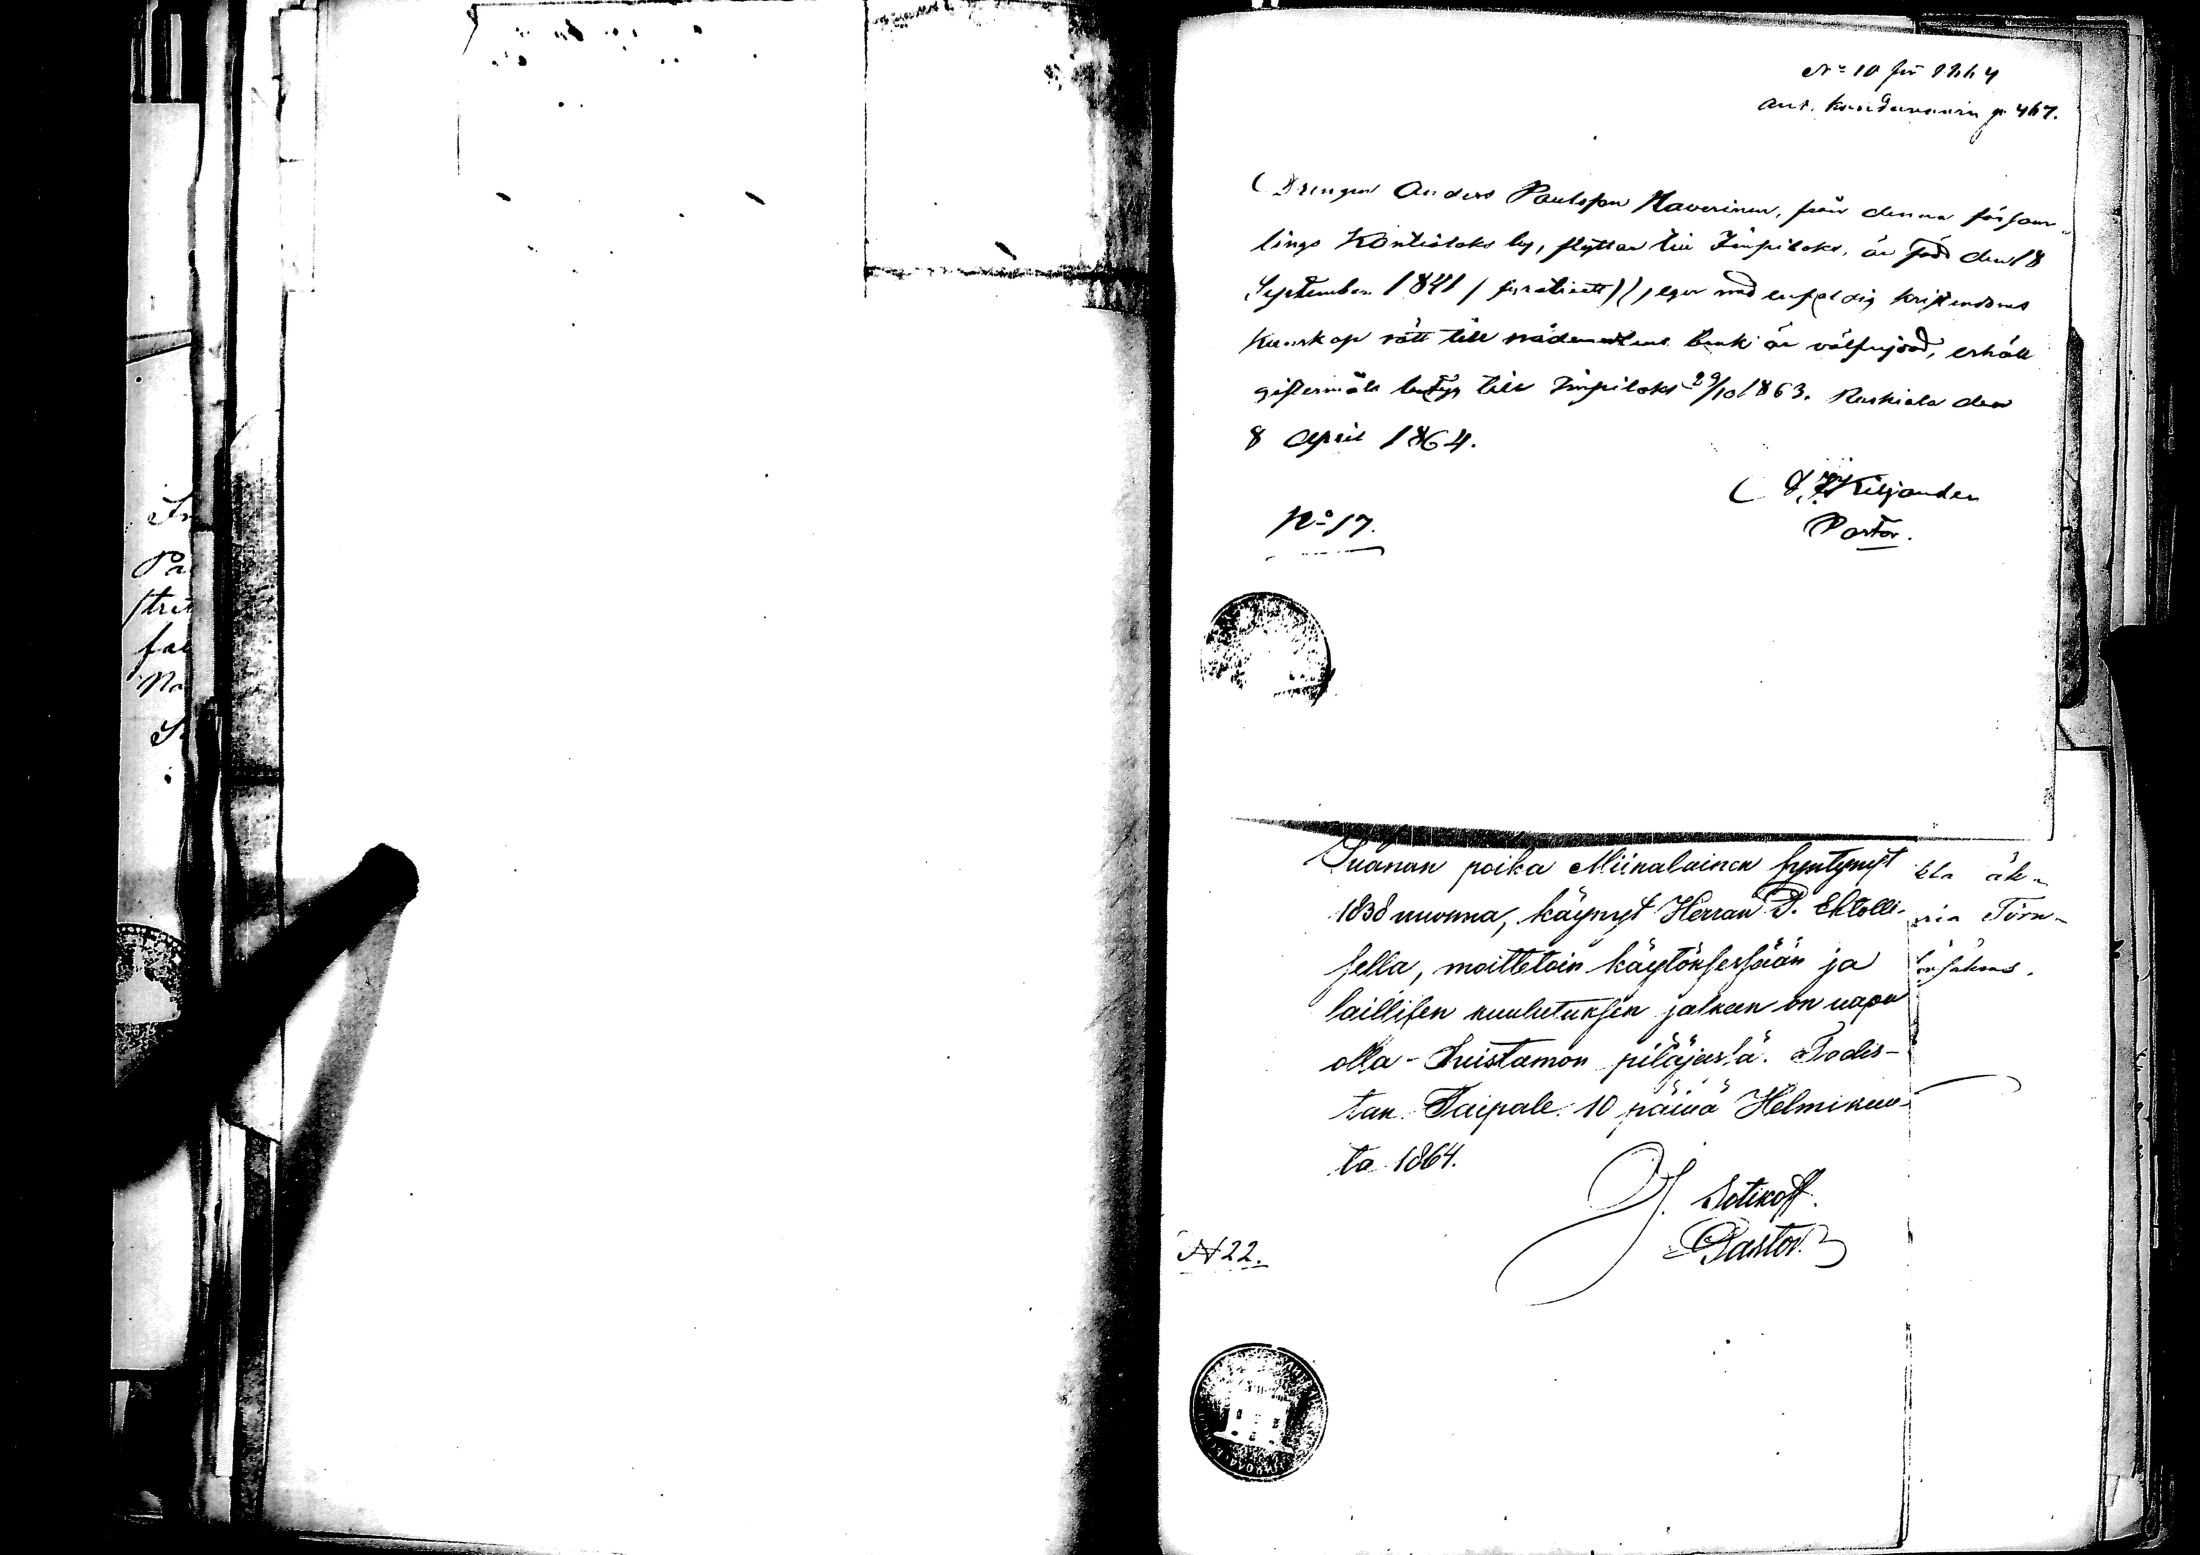 In
På
stri
fa
Na
N:o 10 för 1864
Ant. p 467.
Drengen Anders Paulsson Haverinen, från denna försam-
lings Kontiolaks by, flyttar till Impilaks, är född den 18
September 1841 / fyratioett /, eger med enfaldig kristendoms
Kunskap rätt till nådemedlens bruk är välfrejdad, erhöll
giftermåls betyg till Impilaks 29/10 1863. Ruskiala den
8 April 1864.
Kiljander
Pastor.
N:o 17.
Iwanan poika Miinalainen syntynyt
1838 vuonna, käynyt Herran P. Ehtolli-
sella, moittetoin käytöksessään ja
laillisen kuulutuksen jälkeen on vapa
olla - Suistamon pitäjästä. Todis-
tan. Taipale. 10 päivä Helmikuu-
ta 1864.
Sotikoff.
Pastor.
N 22.
Törn-